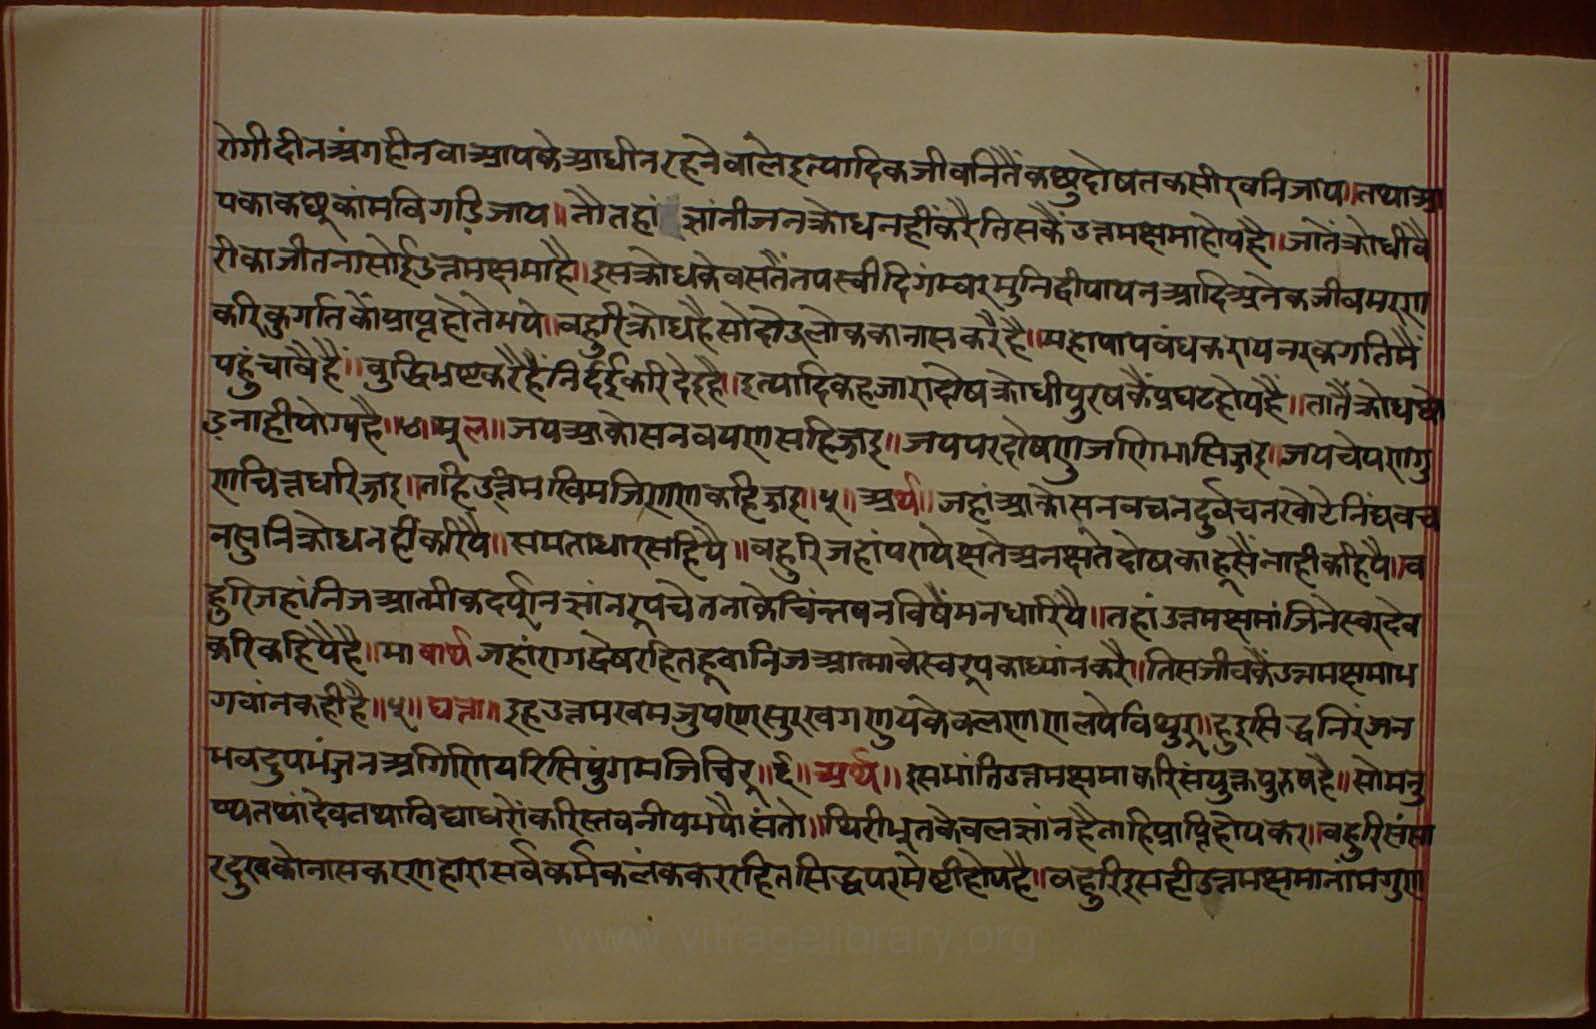 रोगीदीनअंगहीनवाआपकेआधीनरहनेवालेइत्यादिकजीवनितैंकछुदोषतकसीरवनिजाय॥तथाआ
पकाकछूकांमविगडिजाय॥तौतहां ज्ञांनीजनक्रोधनहींकरैतिसकैंउत्तमक्षमाहोयहै॥जातेंक्रोधीवै
रीकाजीतनासोईउत्तमक्षमाहै॥इसक्रोधकेवसतैंतपस्वीदिगंम्वरमुनिद्वीपायनआदिअनेकजीवमरण
करिकुगतिकौंप्राप्तहोतेभये॥वहुरीक्रोधहैसोदोउलोककानासकरैहै॥महापापवंधकरायनरकगतिमैं
पहुंचावैहैं॥वुद्धिभ्रष्टकरैहैंनिर्दईकरिदेइहै॥इत्यादिकहजारादोषक्रोधीपुरषकैंप्रघटहोयहैं॥तातैंक्रोधछो
डनाहीयोग्यहै॥४॥मूल॥जयआकोसनवयणसहिज्जइ॥जयपरदोषणुजणिभासिज्जइ॥जयचेयणगु
णचित्तधरिज्जइ॥तहिउत्तिमखिमजिणणकहिज्जइ॥५॥अर्थ॥जहांआक्रोसनवचनदुर्वचनखोटेनिंद्यवच
नसुनिक्रोधनहींकरियै॥समताधारसहियै॥वहुरिजहांपरायेक्षतेअनक्षतेदोषकाहूसैंनाहीकहियै॥व
हुरिजहांनिजआत्मीकदर्पानज्ञांनरूपचेतनाकेचिंन्तवनविषैंमनधारियै॥तहांउत्तमक्षमांजिनेस्वरदेव
करिकहियैहै॥भावार्थजहांरागद्वेषरहितहूवानिजआत्माकेस्वरूपकाध्यांनकरै॥तिसजीवकैंउत्तमक्षमाभ
गवांनकहीहै॥५॥घत्ता॥इहउत्तमखमजुयणरसुरखगणुयकेवलणाणलयेविथुरू॥हुइसिद्धनिरंजन
भवदुषभंजनअगिणियरिसिपुंगमजिचिरू॥६॥अर्थ॥इसभांतिउत्तमक्षमाकरिसंयुक्तपुरुषहै॥सोमनु
ष्यतथांदेवतथाविद्याधरोंकरिस्तवनीयभयौसंतो॥थिरीभूतकेवलज्ञांनहैताहिप्राप्तिहोयकर॥वहुरिसंसा
रदुखकोनासकरणहारासर्वकर्मकलंककररहितसिद्धपरमेष्टीहोयहै॥वहुरिइसहीउत्तमक्षमानांमगुण
www.vitragelibrary.org